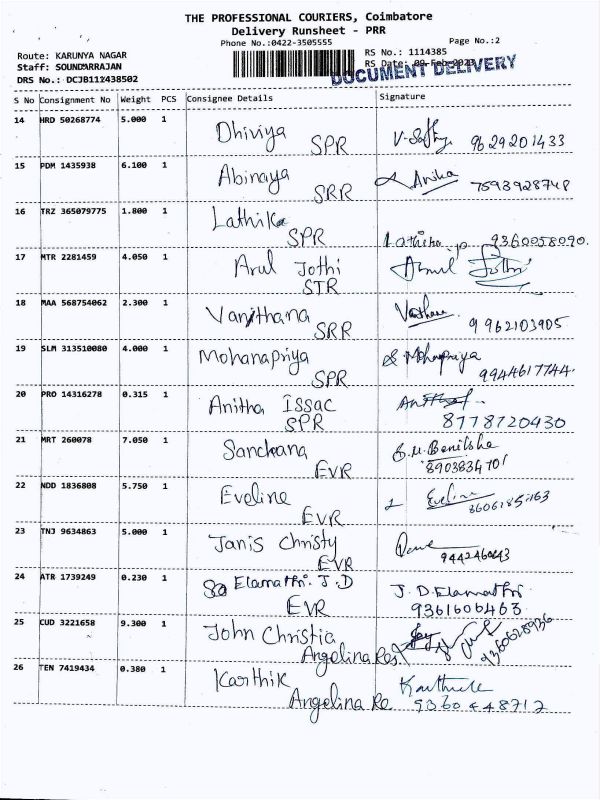 THE PROFESSIONAL COURIERS, Coimbatore
Delivery Runsheet - PRR
Phone No.:0422-3505555 Page No.:2
Route: KARUNYA NAGAR RS No.: 1114385
Staff: SOUNDARRAJAN RS Date: 09-Feb-2023
DRS No.: DCJB112438502 DOCUMENT DELIVERY
S No Consignment No Weight PCS Consignee Details Signature
14 HRD 50268774 5.000 1 Dhiviya SPR 9629201433
15 PDM 1435938 6.100 1 Abinaya SRR Anika 7593928748
16 TRZ 365079775 1.800 1 Lathika SPR 9360058090.
17 MTR 2281459 4.050 1 Arul Jothi STR Arul Jothi
18 MAA 568754062 2.300 1 Vanithana SRR 9962103905
19 SLM 313510080 4.000 1 Mohanapriya SPR Mohanapriya 9944617744.
20 PRO 14316278 0.315 1 Anitha Issac SPR 8778720430
21 MRT 260078 7.050 1 Sanchana EVR 8903834701
22 NDD 1836808 5.750 1 Eveline EVR Eveline
23 TNJ 9634863 5.000 1 Janis Christy EVR
24 ATR 1739249 0.230 1 Elamathi. J.D EVR J.D.Elamathi 9361606463
25 CUD 3221658 9.300 1 John Christia Angelina Res. 9360628936
26 TEN 7419434 0.380 1 Karthik Angelina Re Karthick 9360448712